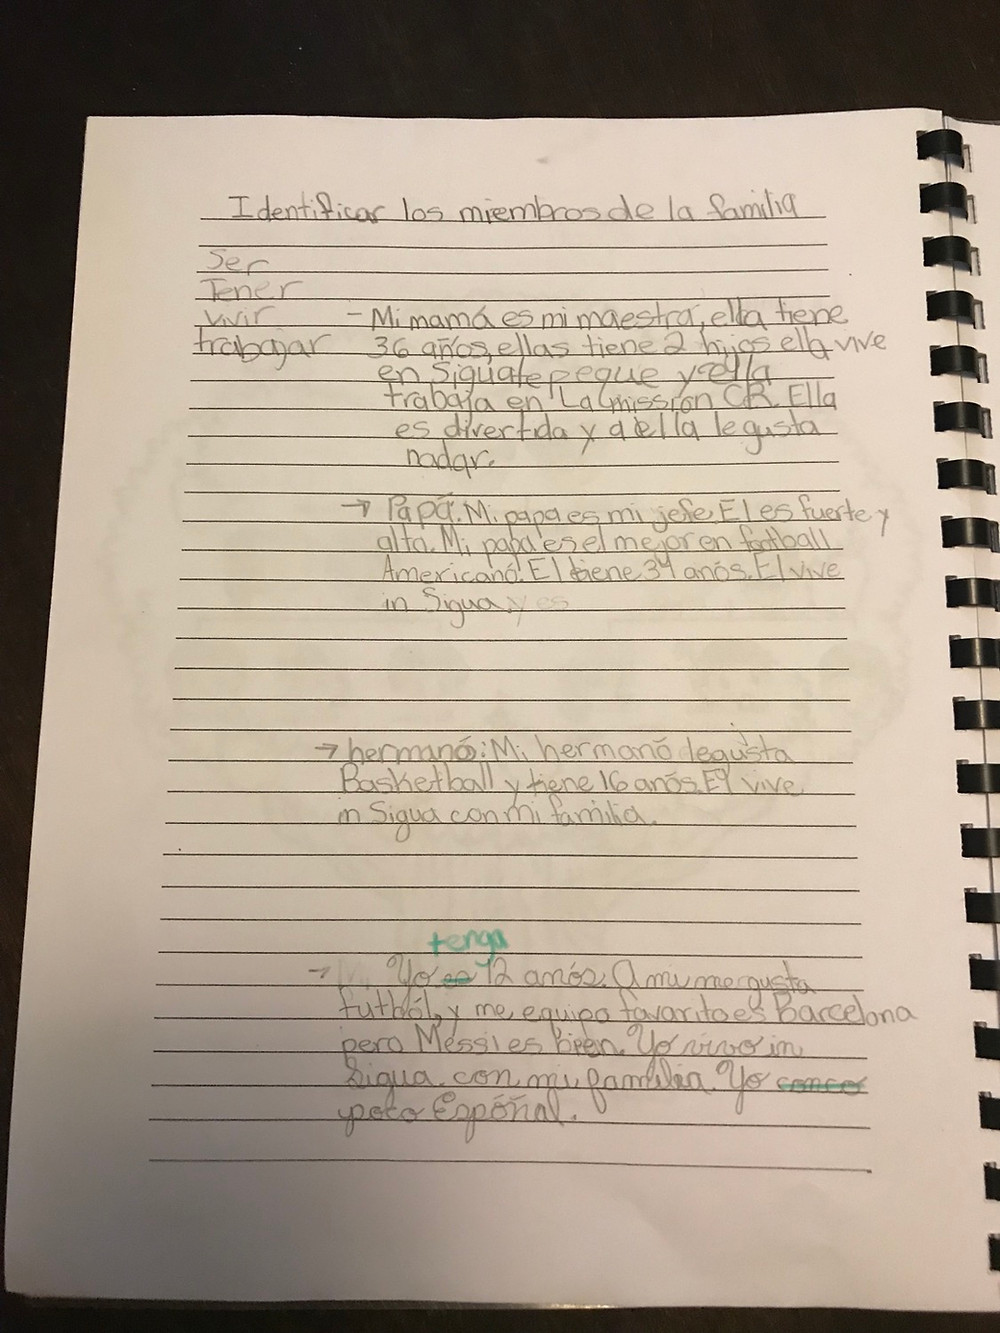 Identificar los miembros de la familia
Ser
Tener
vivir - Mi mamá es mi maestra, ella tiene
trabajar 36 años, ellas tiene 2 hijos ella vive
en Siguatepeque y ella
trabaja en La mission CR. Ella
es divertida y a ella le gusta
nadar.
→ Papá. Mi papa es mi jefe. El es fuerte y
alta. Mi papa es el mejor en football
Americanó. El tiene 34 anós. El vive
in Sigua, y es
→ hermanó: Mi hermanó le gusta
Basketball y tiene 16 anós. El vive
in Sigua con mi familia.
tenga
→ Yo es 12 anós. A mu me gusta
futból, y me equipo favarito es Barcelona
pero Messi es bien. Yo vivo in
Sigua con mi familia. Yo
poco Espóñal.